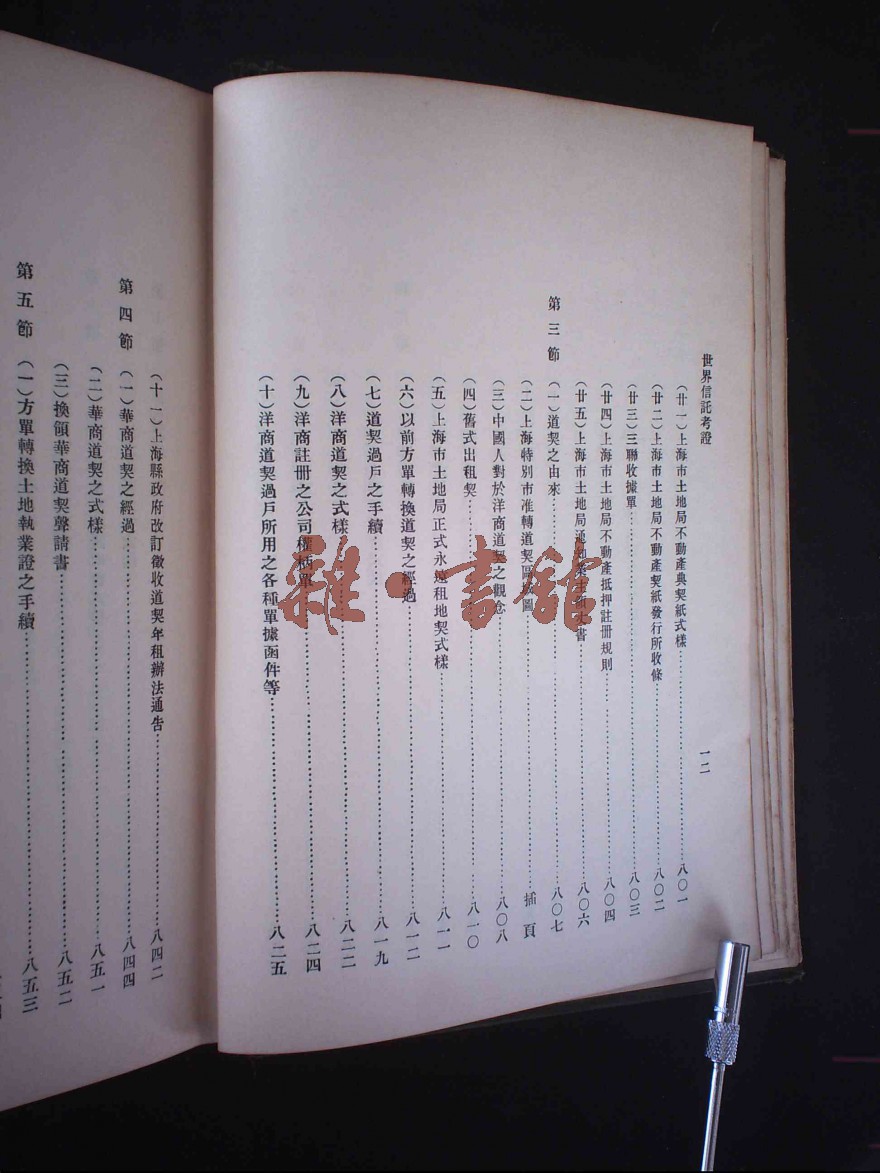 世界信託考證
一二
(廿一)上海市土地局不動產典契紙式樣……八〇一
(廿二)上海市土地局不動產契紙發行所收條……八〇二
(廿三)三聯收據單……八〇三
(廿四)上海市土地局不動產抵押註冊規則……八〇四
(廿五)上海市土地局通知業主領丈書……八〇六
第三節 (一)道契之由來……八〇七
(二)上海特別市准轉道契區域圖……插頁
(三)中國人對於洋商道契之觀念……八〇八
(四)舊式出租契……八一〇
(五)上海市土地局正式永遠租地契式樣……八一一
(六)以前方單轉換道契之經過……八一二
(七)道契過戶之手續……八一九
(八)洋商道契之式樣……八二二
(九)洋商註冊之公司權柄單……八二四
(十)洋商道契過戶所用之各種單據函件等……八二五
(十一)上海縣政府改訂徵收道契年租辦法通告……八四二
第四節 (一)華商道契之經過……八四四
(二)華商道契之式樣……八五一
(三)換領華商道契聲請書……八五二
第五節 (一)方單轉換土地執業證之手續……八五三
雜·書館